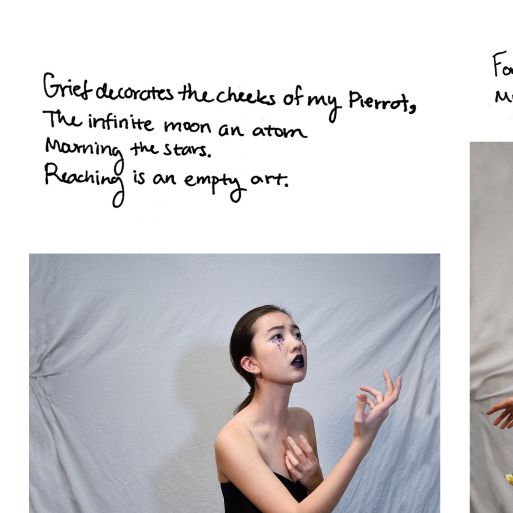 Grief decorates the cheeks of my Pierrot,
The infinite moon an atom
Mourning the stars.
Reaching is an empty art.